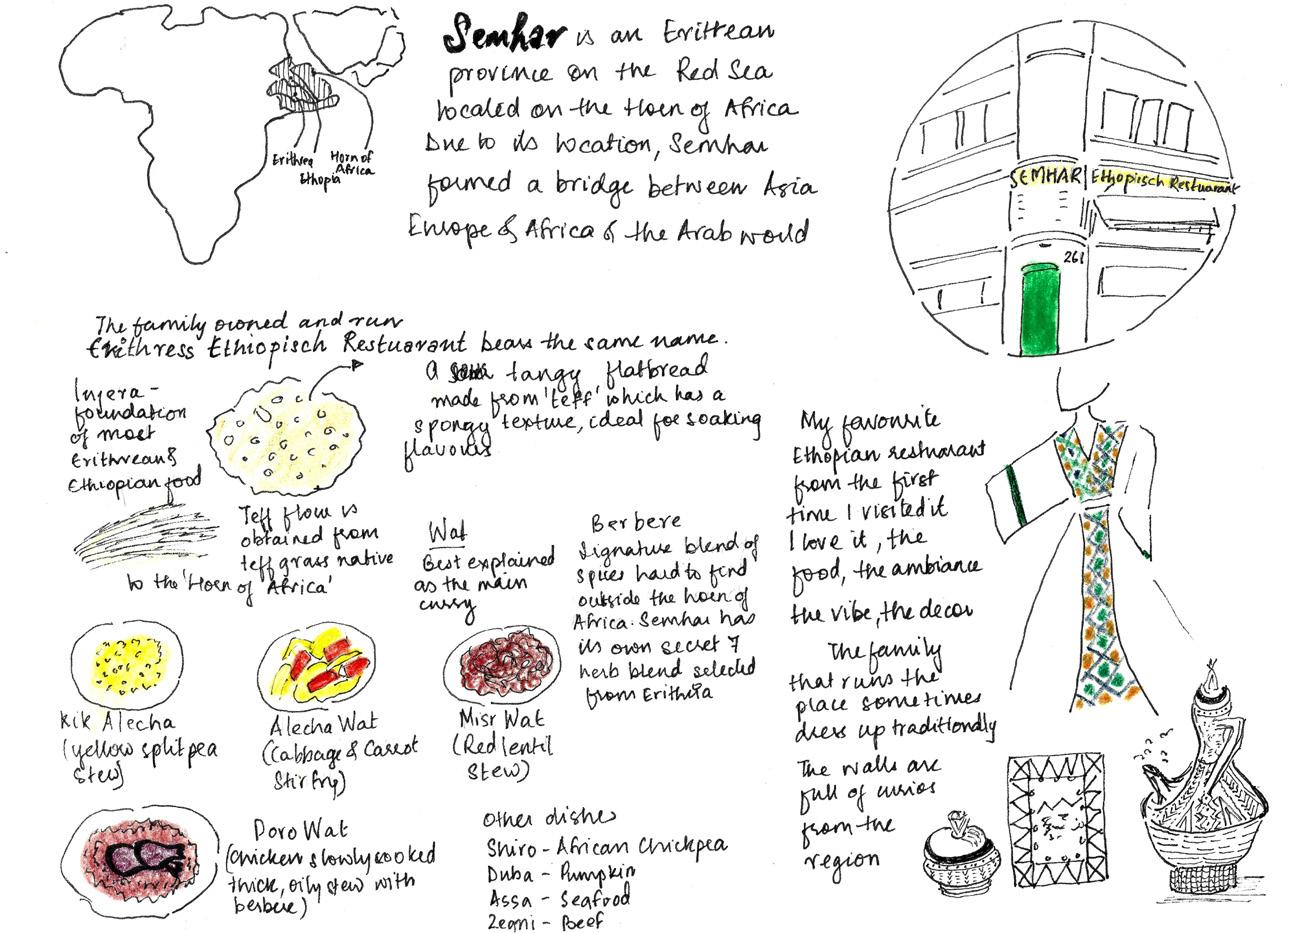 Semhar is an Eritrean
province on the Red Sea
located on the Horn of Africa
Due to its location, Semhar
formed a bridge between Asia
Europe & Africa & the Arab world
Erithrea
Ethopia
Horn of
Africa
SEMHAR Ethopisch Restuarant
261
The family owned and run
Erithress Ethiopisch Restuarant bears the same name.
Injera -
foundation
of most
Erithrean &
Ethiopian food
A tangy flatbread
made from 'teff' which has a
spongy texture, ideal for soaking
flavours
Teff flour is
obtained from
teff grass native
to the 'Horn of Africa'
Wat
Best explained
as the main
curry
Berbere
Signature blend of
spices hard to find
outside the horn of
Africa. Semhar has
its own secret 7
herb blend selected
from Erithria
Kik Alecha
(yellow split pea
stew)
Alecha Wat
(Cabbage & Carrot
Stir fry)
Misr Wat
(Red lentil
Stew)
Doro Wat
(Chicken slowly cooked
thick, oily stew with
berbere)
Other dishes
Shiro - African Chickpea
Duba - Pumpkin
Assa - Seafood
Zegni - Beef
My favourite
Ethopian restuarant
from the first
time I visited it
I love it, the
food, the ambiance
the vibe, the decor
The family
that runs the
place sometimes
dress up traditionally
The walls are
full of curios
from the
region